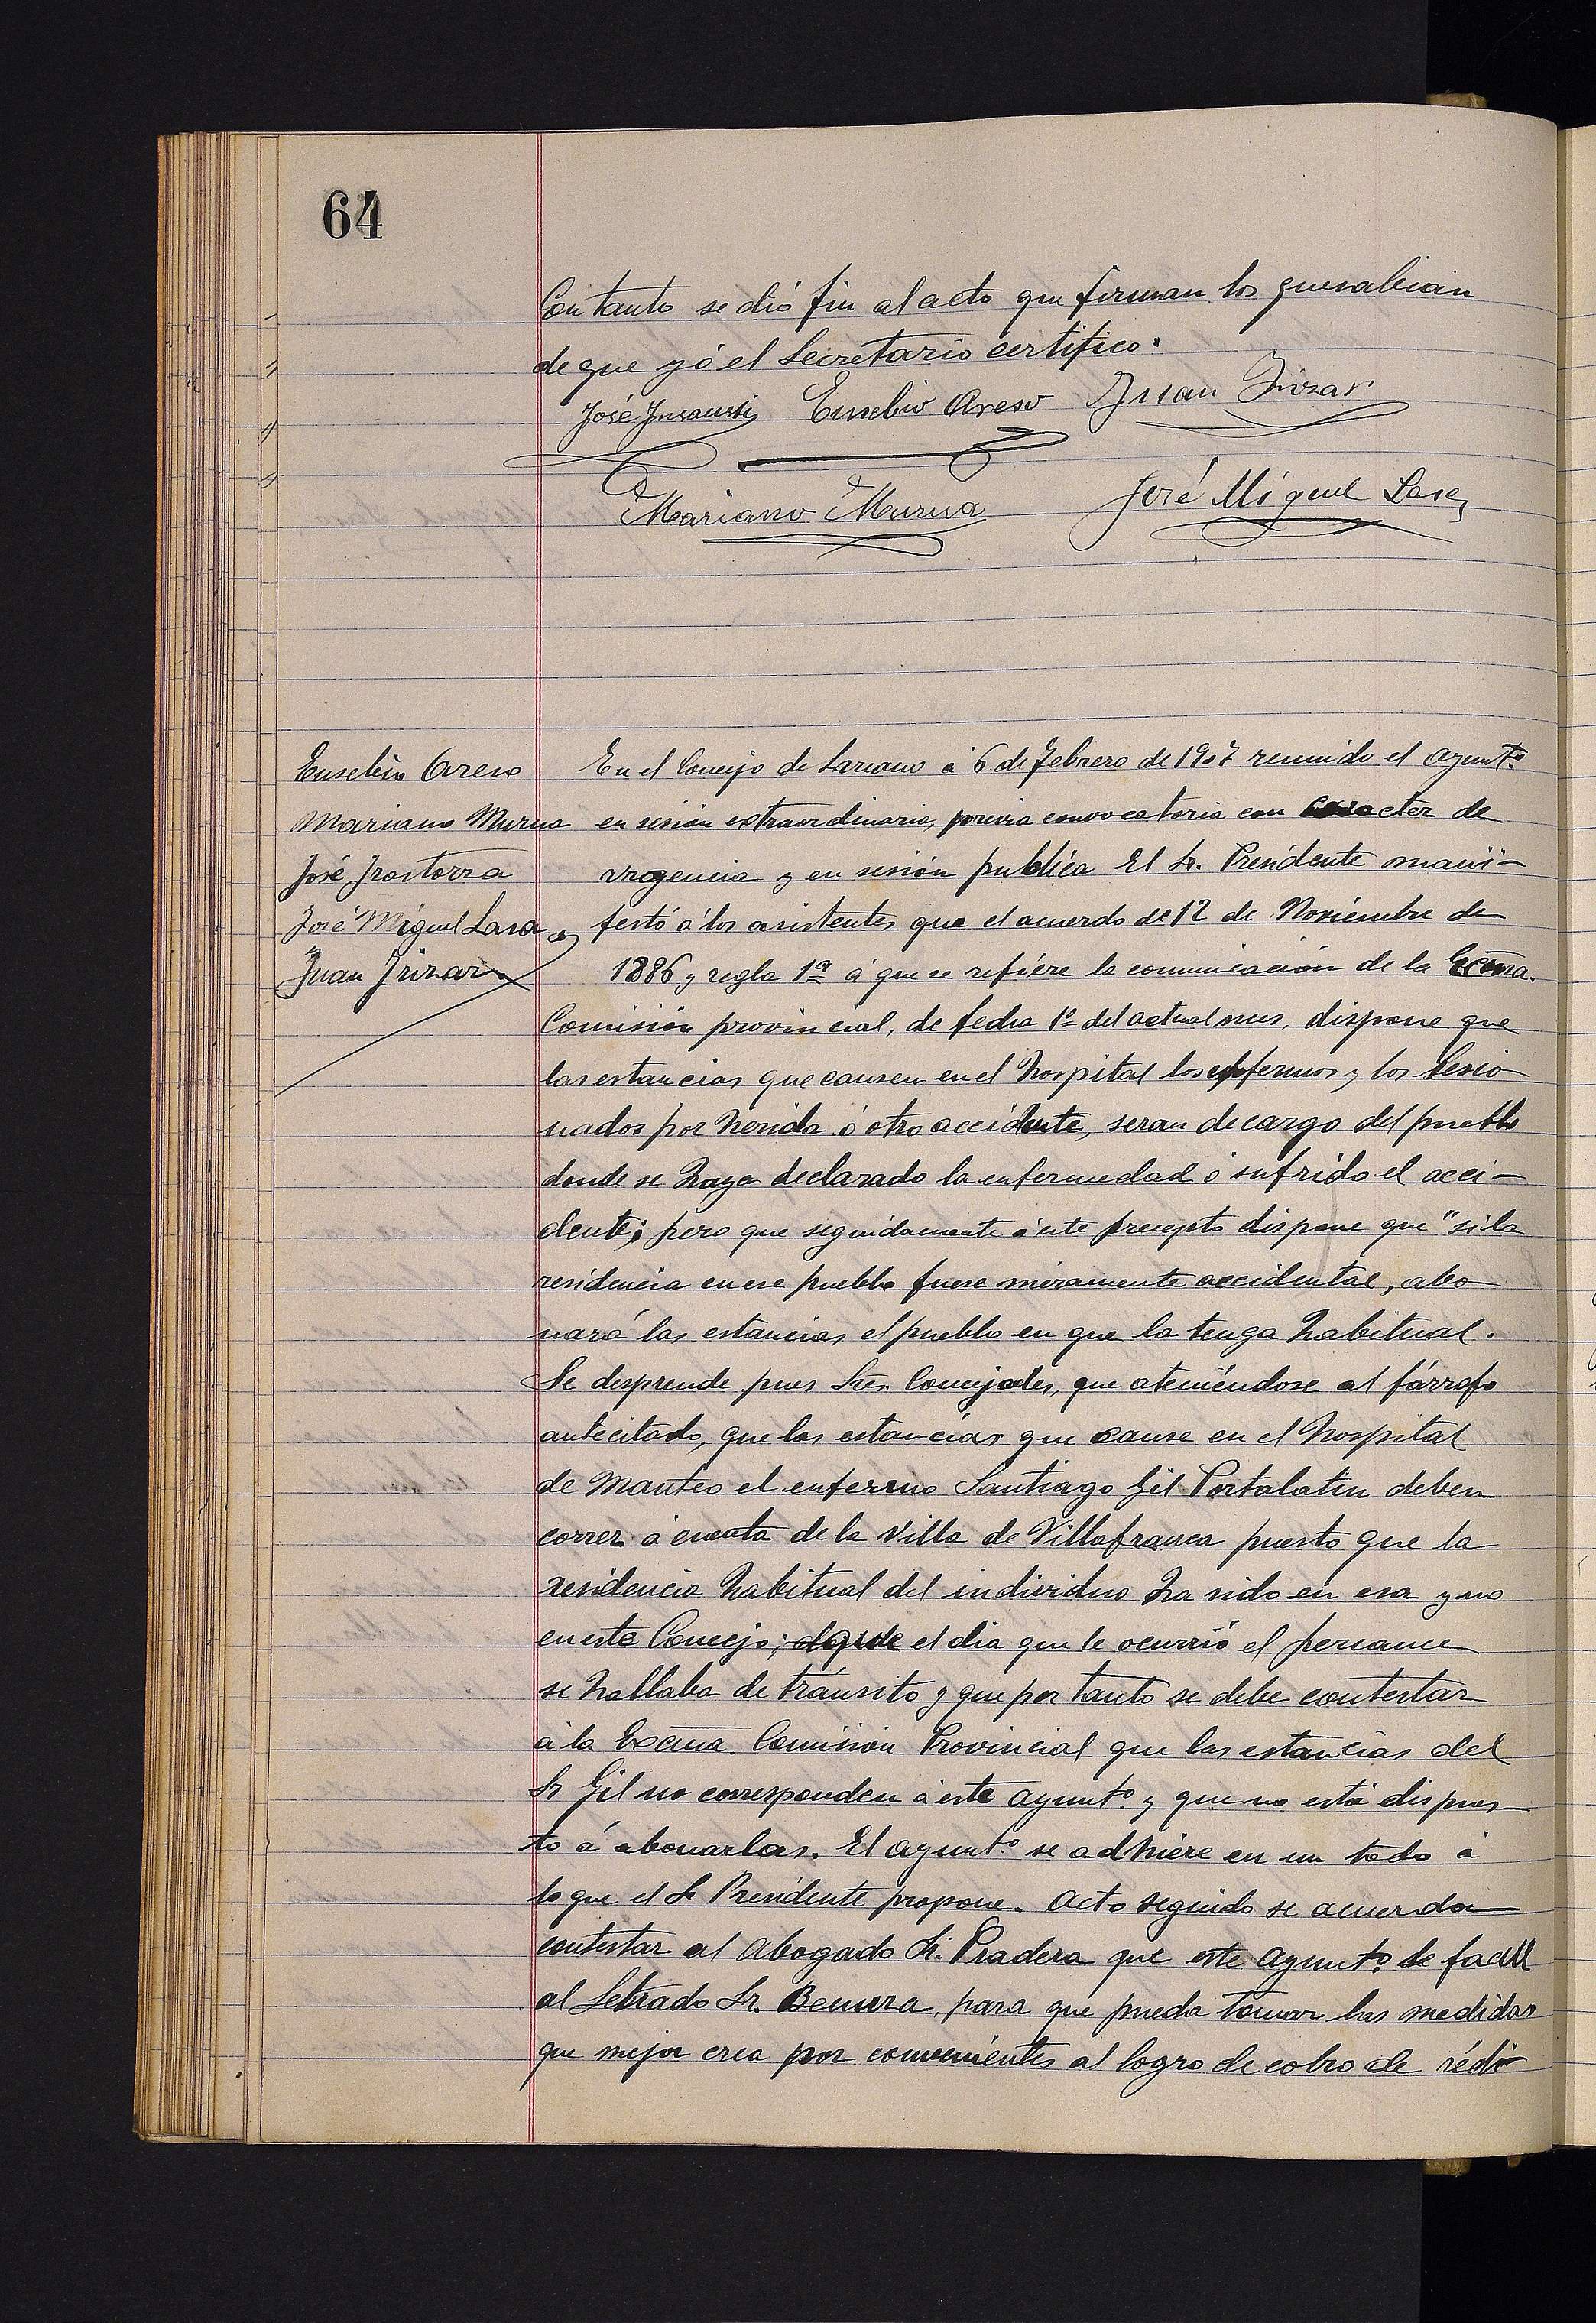 64
Con tanto se dió fin al acto que firman los que sabian
de que yó el Secretario certifico.
José Insausti Eusebio Areso Juan Irizar
Mariano Murua José Miguel Lasa
Eusebio Areso
Mariano Murua
José Irastorza
José Miguel Lasa
Juan Irizar
En el Concejo de Lazcano á 6 de Febrero de 1907 reunido el ayunt.º
en sesión extraordinaria, previa convocatoria con caracter de
urgencia y en sesión publica El Sr. Presidente mani-
festó á los asistentes que el acuerdo de 12 de Noviembre de
1886 y regla 1ª á que se refiere la comunicación de la Ecma.
Comisión provincial, de fecha 1º del actual mes, dispone que
las estancias que causen en el hospital los enfermos y los lesio
nados por herida ó otro accidente, seran de cargo del pueblo
donde se haya declarado la enfermedad ó sufrido el acci-
dente; pero que seguidamente á este precepto dispone que "si la
residencia en ese pueblo fuese meramente accidental, abo
nará las estancias el pueblo en que la tenga habitual.
Se desprende pues Sres. Concejales, que ateniéndose al párrafo
antecitado, que las estancias que cause en el hospital
de Manteo el enfermo Santiago Gil Portalatin deben
correr á cuenta de la Villa de Villafranca puesto que la
residencia habitual del individuo ha sido en esa y no
en este Concejo; el dia que le ocurrió el percance
se hallaba de tránsito y que por tanto se debe contestar
á la Excma. Comisión Provincial que las estancias del
Sr Gil no corresponden á este ayunt.º y que no está dispues-
to á abonarlas. El ayunt.º se adhiere en un todo á
lo que el Sr Presidente propone. Acto seguido se acuerda
contestar al Abogado Sr. Pradera que este Ayunt.º
al Letrado Sr. para que pueda tomar las medidas
que mejor crea por convenientes al logro de cobro de rédi-